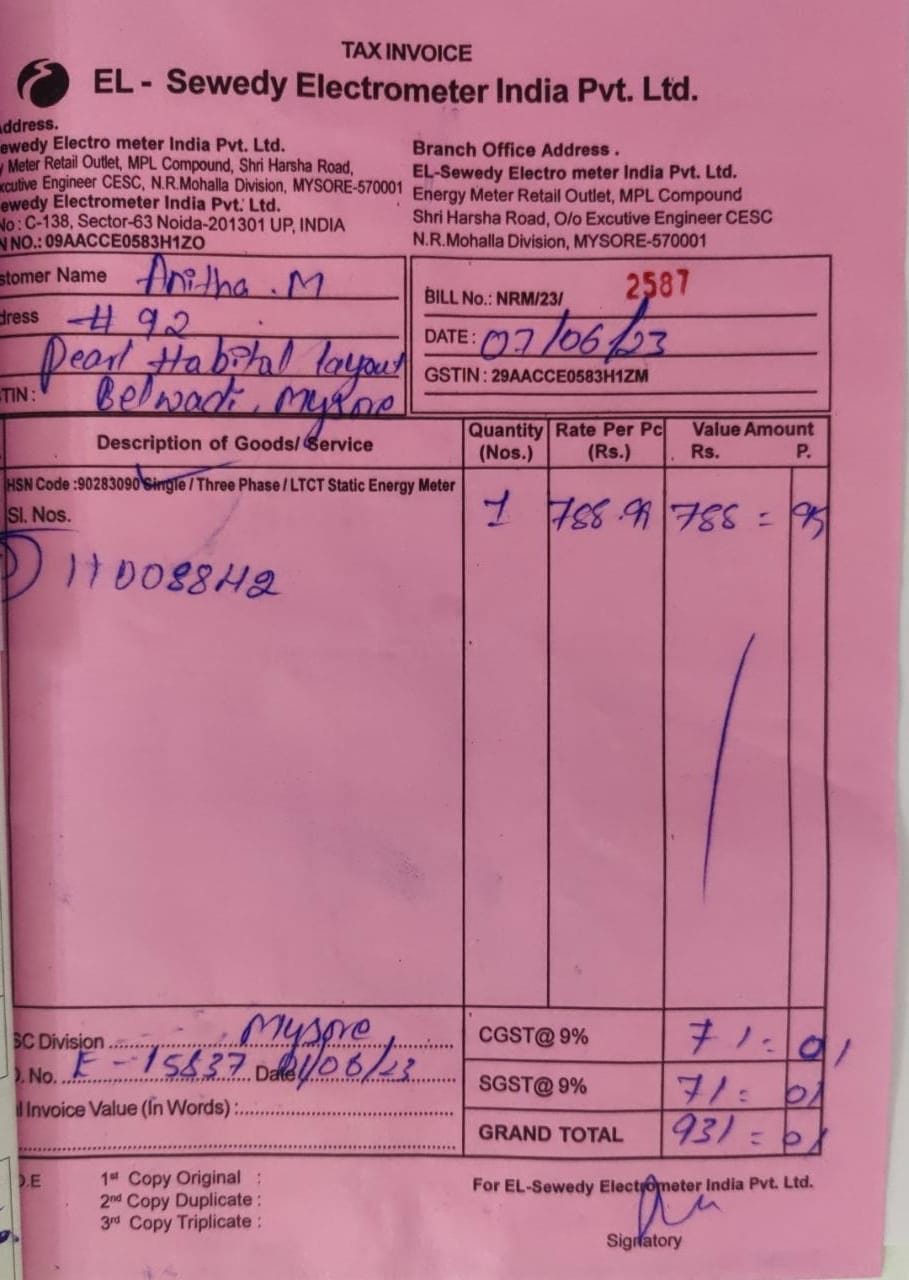 TAX INVOICE
EL - Sewedy Electrometer India Pvt. Ltd.
ddress.
ewedy Electro meter India Pvt. Ltd.
Meter Retail Outlet, MPL Compound, Shri Harsha Road,
xcutive Engineer CESC, N.R.Mohalla Division, MYSORE-570001
ewedy Electrometer India Pvt. Ltd.
No : C-138, Sector-63 Noida-201301 UP, INDIA
N NO.: 09AACCE0583H1ZO
Branch Office Address .
EL-Sewedy Electro meter India Pvt. Ltd.
Energy Meter Retail Outlet, MPL Compound
Shri Harsha Road, O/o Excutive Engineer CESC
N.R.Mohalla Division, MYSORE-570001
stomer Name Anitha . M
dress # 92
Pearl Habital layout
TIN : Belwadi, Mysore
BILL No.: NRM/23/ 2587
DATE : 07/06/23
GSTIN : 29AACCE0583H1ZM
Description of Goods/ Service Quantity (Nos.) Rate Per Pc (Rs.) Value Amount Rs. P.
HSN Code :90283090 Single / Three Phase / LTCT Static Energy Meter
Sl. Nos. 1 788 = 
SC Division Mysore
. No. E - 15837 Date /06/23
l Invoice Value (In Words) :
CGST@ 9% 71 = 01
SGST@ 9% 71 = 01
GRAND TOTAL 931 = 01
O.E
1st Copy Original :
2nd Copy Duplicate :
3rd Copy Triplicate :
For EL-Sewedy Electrometer India Pvt. Ltd.
Signatory